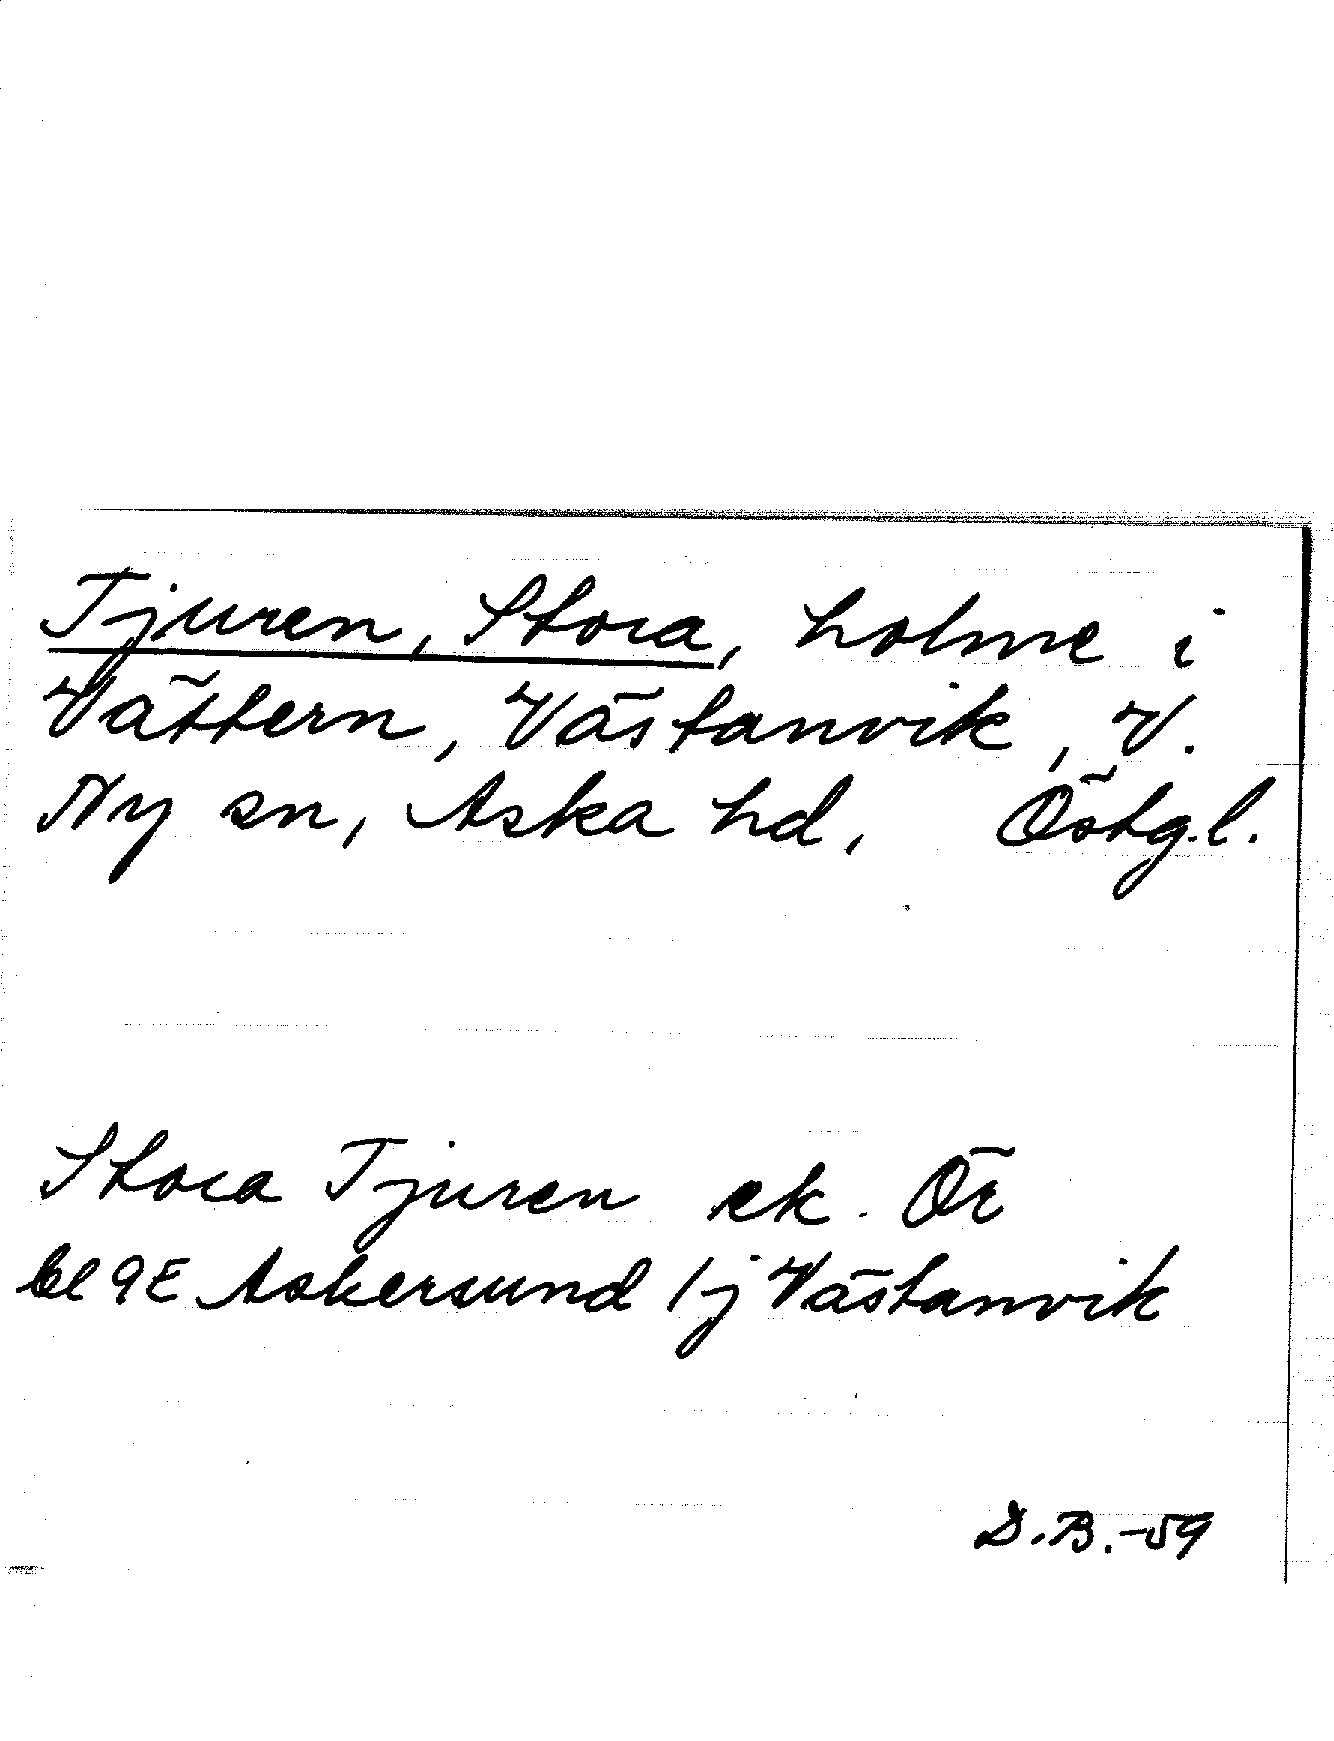 Tjuren, Stora, holme i
Vättern, Västanvik, V.
Ny sn, Aska hd, Östg.l.
Stora Tjuren ek. Ör
bl 9E Askersund 1j Västanvik
D.B.-59